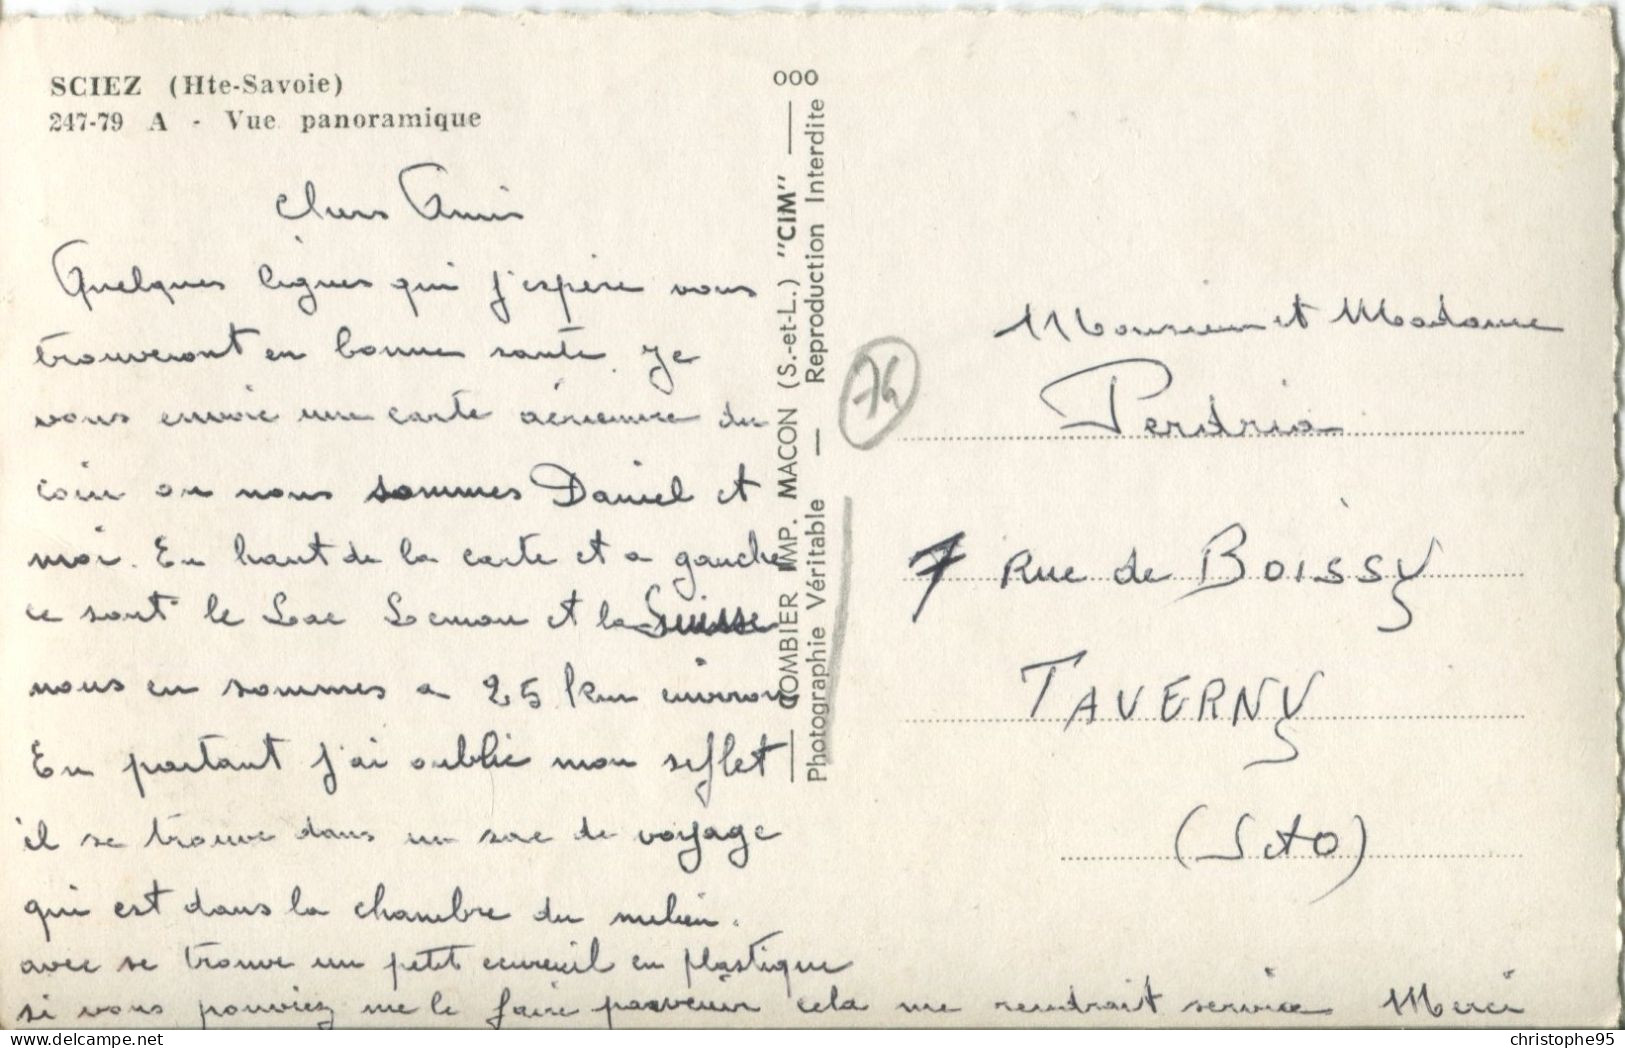 SCIEZ (Hte-Savoie)
247-79 A - Vue panoramique
Chers Amis
Quelques lignes qui j'espère vous
trouveront en bonne santé. Je
vous envoie une carte aérienne du
coin ou nous sommes Daniel et
moi. En haut de la carte et a gauche
ce sont le Lac Leman et la Suisse
nous en sommes a 25 km environ
En partant j'ai oublié mon siflet
il se trouve dans un sac de voyage
qui est dans la chambre du milieu.
avec se trouve un petit ecureuil en plastique
si vous pouviez me le faire parvenir cela me rendrait service Merci
000
COMBIER IMP. MACON (S.-et-L.) "CIM"
Photographie Véritable — Reproduction Interdite
74
Monsieur et Madame
Perdrix
7 Rue de BOISSY
TAVERNY
(S et O)
christophe95